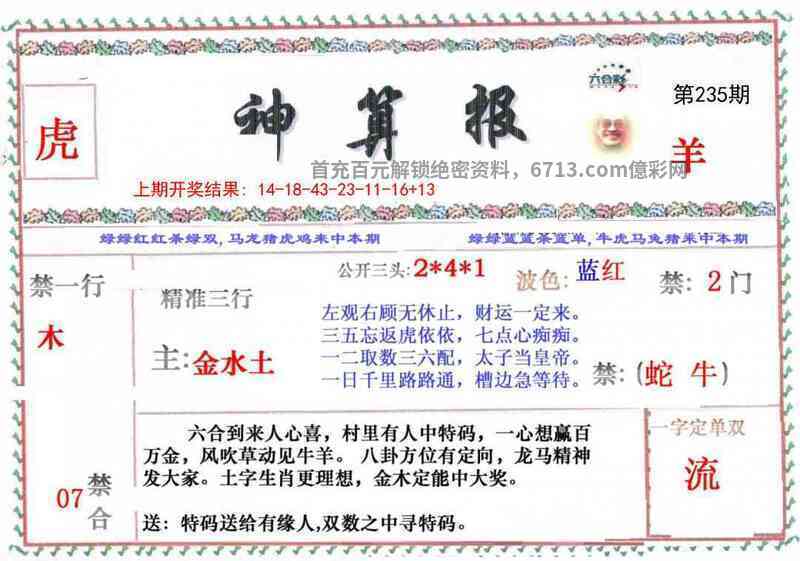 六合彩
第235期
虎
神算报
羊
首充百元解锁绝密资料，6713.com億彩网
上期开奖结果：14-18-43-23-11-16+13
绿绿红红条绿双,马龙猪虎鸡来中本期
绿绿蓝蓝条蓝单,牛虎马兔猪来中本期
禁一行
木
精准三行
主:金水土
公开三头:2*4*1
波色:蓝红
禁:2门
左观右顾无休止，财运一定来。
三五忘返虎依依，七点心痴痴。
一二取数三六配，太子当皇帝。
一日千里路路通，槽边急等待。
禁:(蛇 牛)
六合到来人心喜，村里有人中特码，一心想赢百
万金，风吹草动见牛羊。 八卦方位有定向，龙马精神
发大家。土字生肖更理想，金木定能中大奖。
送：特码送给有缘人,双数之中寻特码。
07
禁合
一字定单双
流